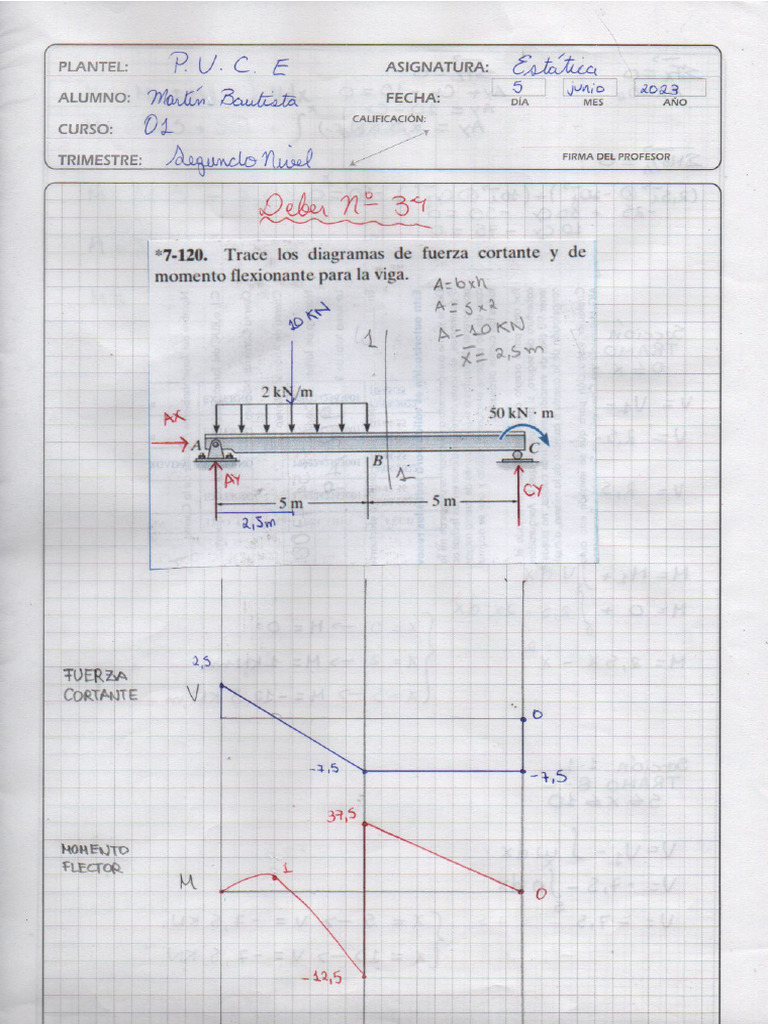 PLANTEL: P.U.C.E
ASIGNATURA: Estática
ALUMNO: Martín Bautista
FECHA: 5 junio 2023
DÍA MES AÑO
CURSO: 01
CALIFICACIÓN:
TRIMESTRE: Segundo Nivel
FIRMA DEL PROFESOR
Deber Nº 34
*7-120. Trace los diagramas de fuerza cortante y de
momento flexionante para la viga.
A=bxh
A=5x2
A=10KN
x̄=2,5m
10 KN
1
2 kN/m
50 kN · m
AX
A
B
C
AY
1
CY
5 m
5 m
2,5m
FUERZA
CORTANTE
V
2,5
0
-7,5
-7,5
37,5
MOMENTO
FLECTOR
M
1
0
-12,5